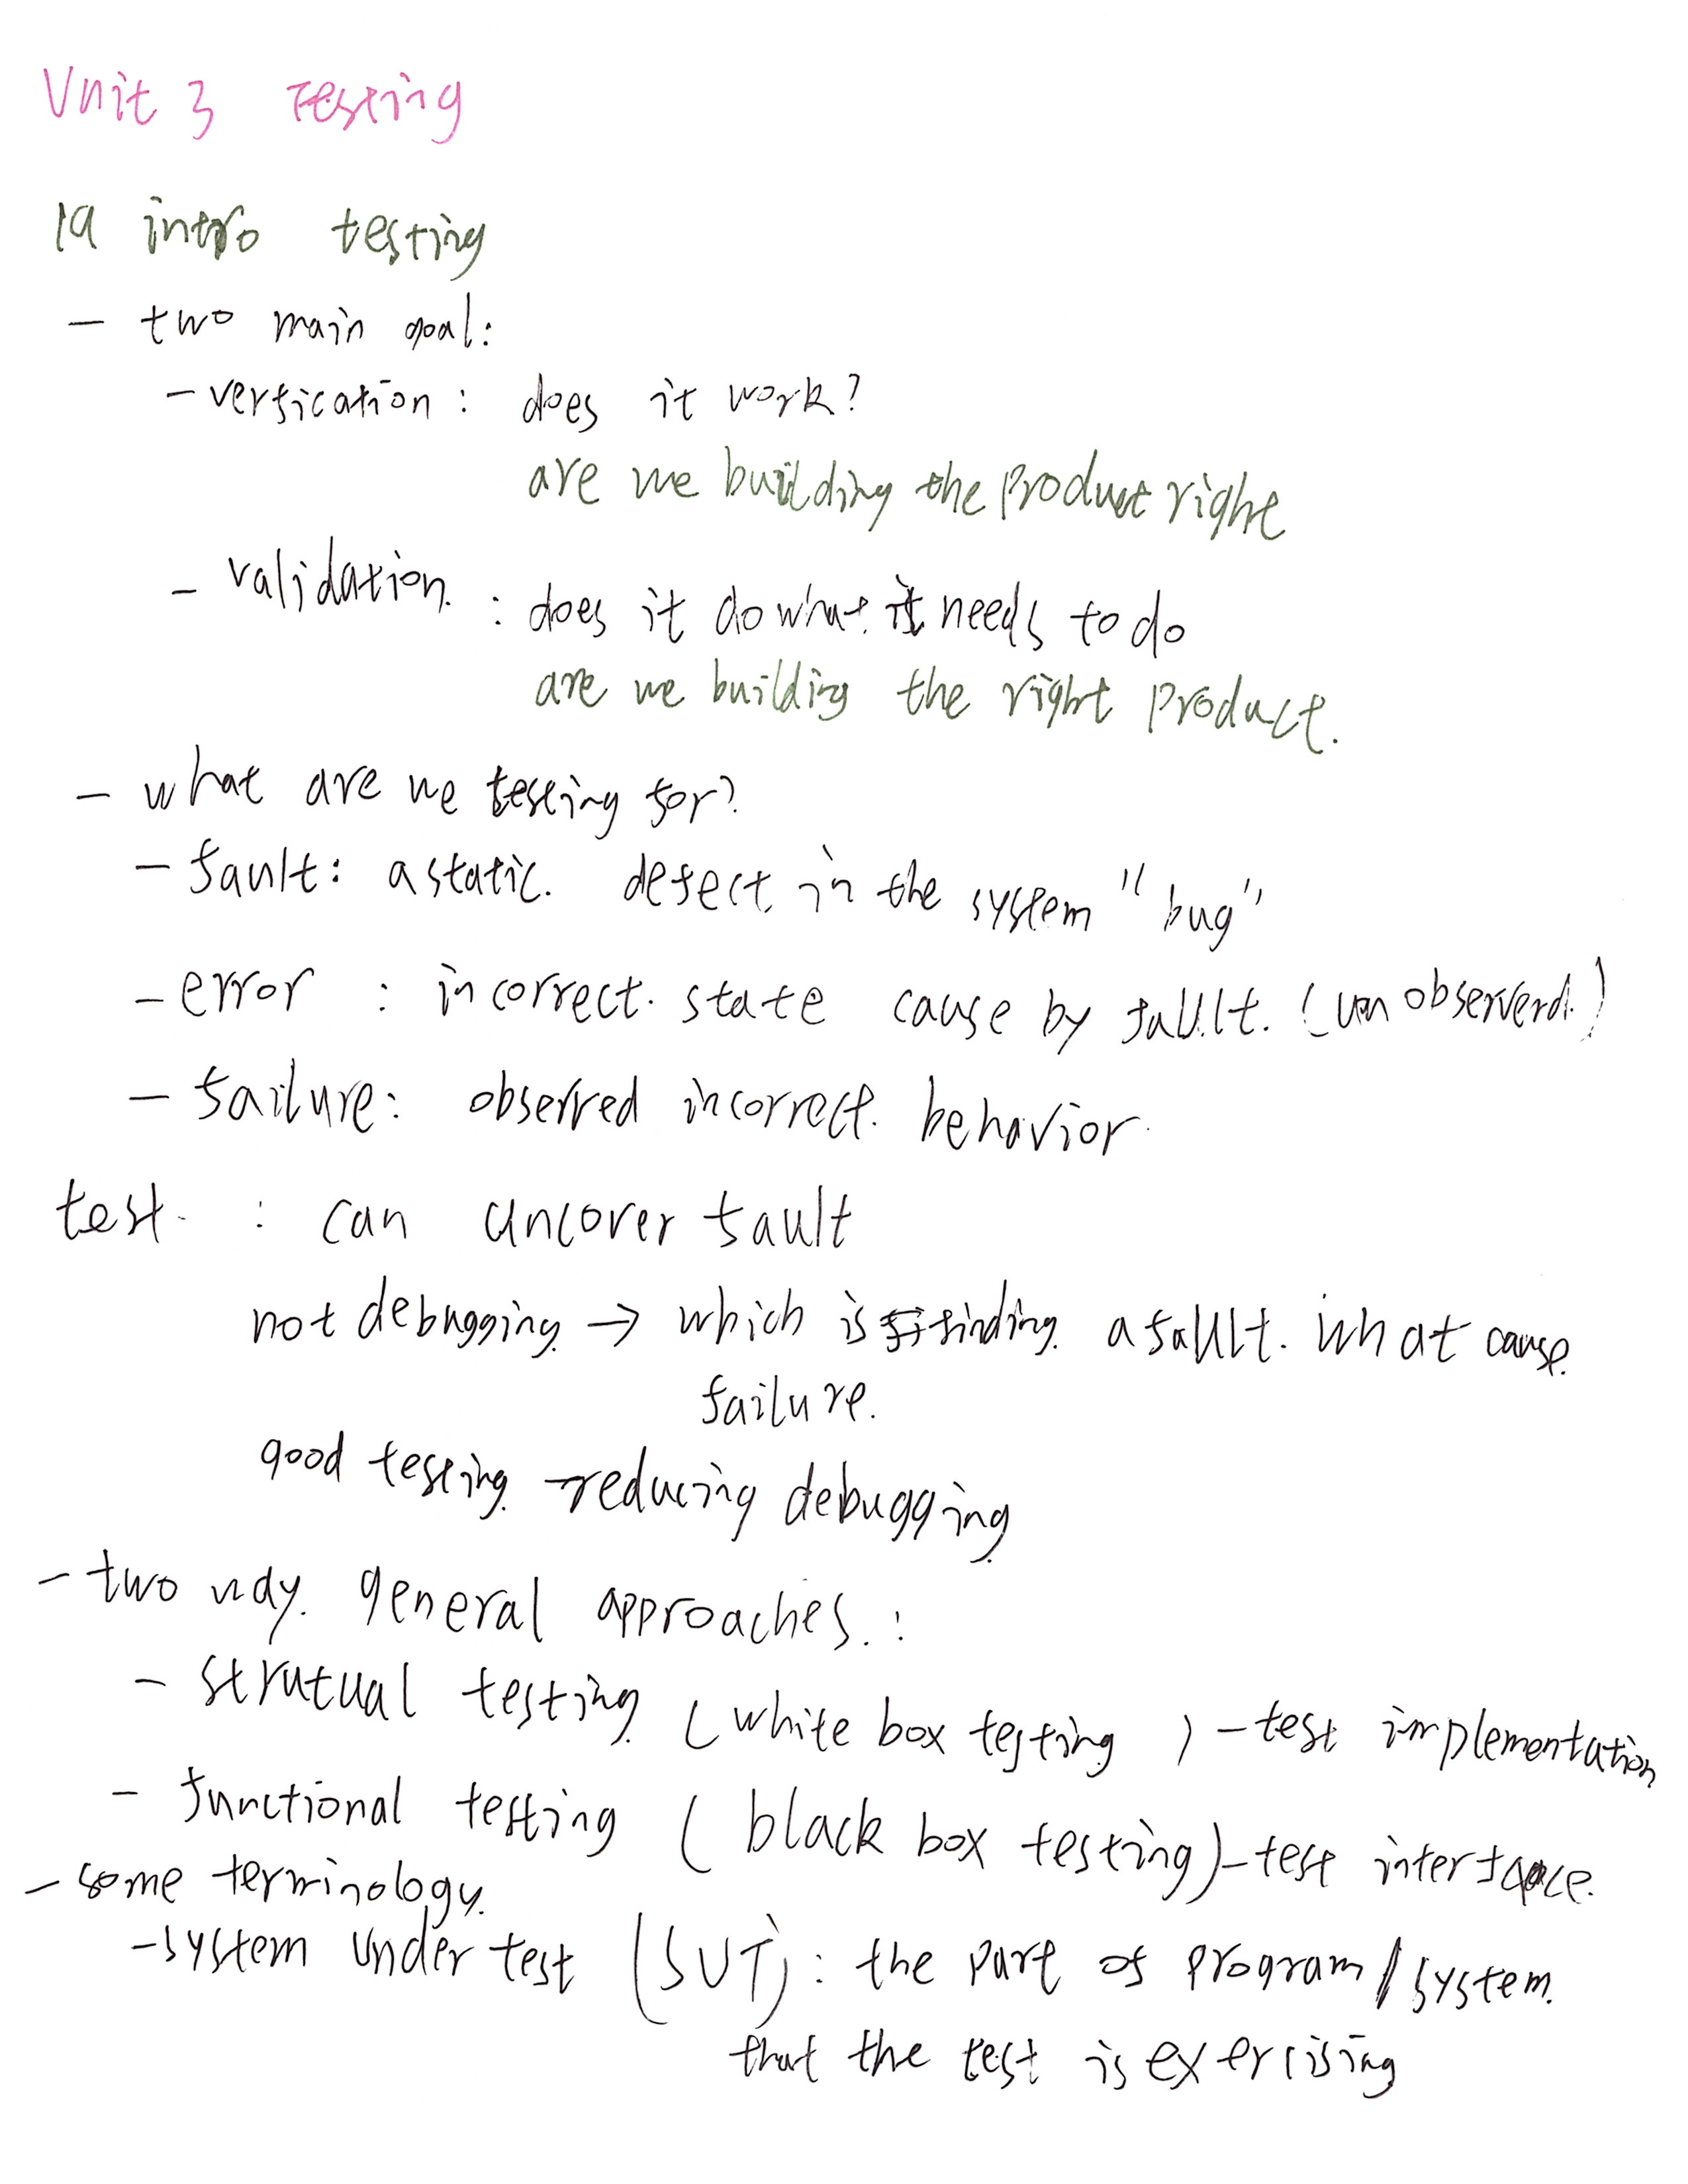 Unit 3 Testing
1a intro testing
- two main goal:
- verfication : does it work?
are we building the product right
- validation. : does it do what it needs to do
are we building the right product.
- what are we testing for?
- fault: a static. defect in the system "bug"
- error : incorrect. state cause by fault. (un observerd.)
- failure: observed incorrect. behavior.
test. : can uncover fault
not debugging. → which is finding. a fault. what cause.
failure.
good testing. reducing debugging
- two way. general approaches. :
- strutual testing. (white box testing ) - test implementation
- functional testing ( black box testing) - test interface.
- some terminology.
- system under test (SUT) : the part of program/system.
that the test is exercising